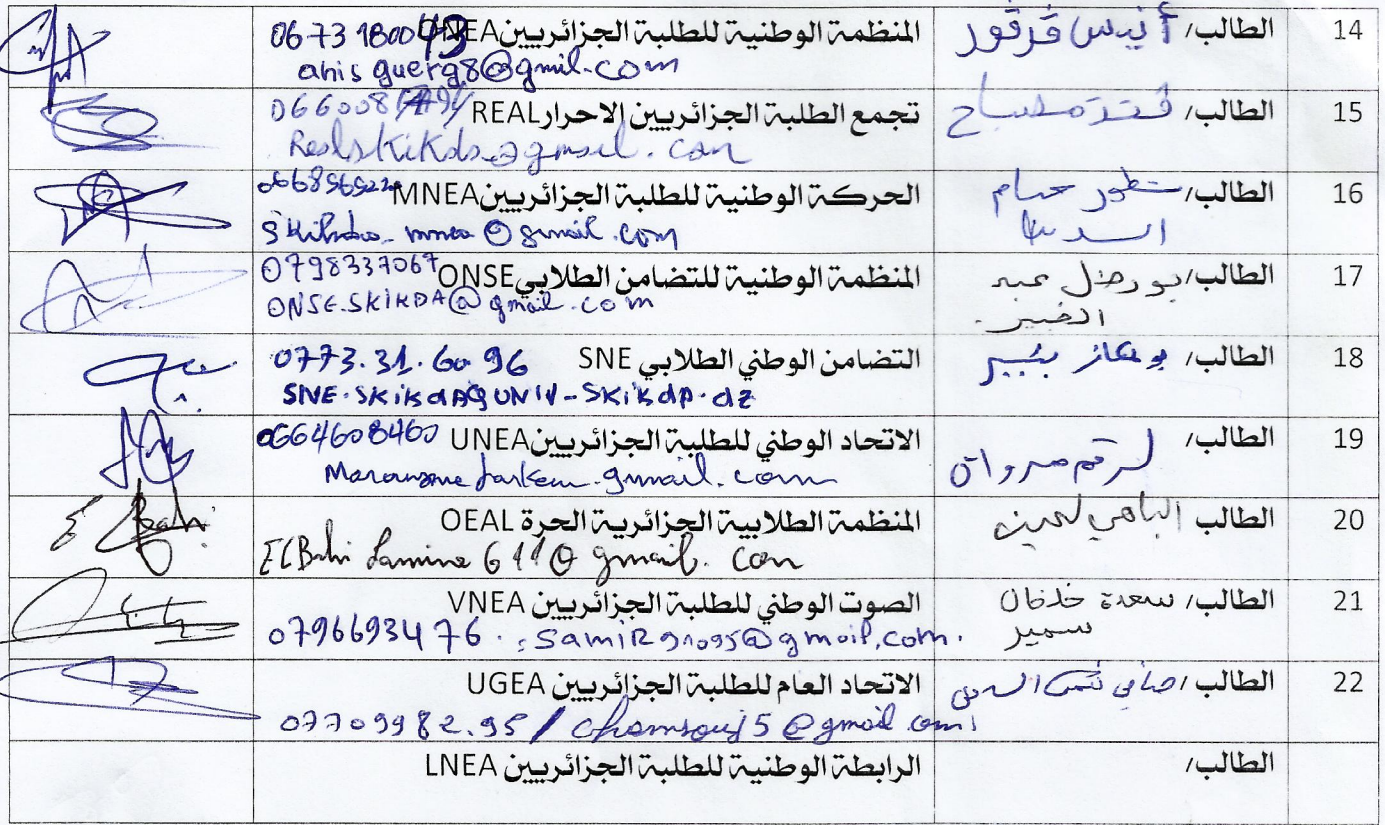 14 الطالب/ أنيس قرقور المنظمة الوطنية للطلبة الجزائريين ONEA 0673180043
anisguerg8@gmil.com
15 الطالب/ مصباح تجمع الطلبة الجزائريين الاحرار REAL
Realskikda@gmail.com
16 الطالب/ حسام الحركة الوطنية للطلبة الجزائريين MNEA
skikda-mnea@gmail.com
17 الطالب/ عبد المنظمة الوطنية للتضامن الطلابي ONSE 0798337067
ONSE.SKIKDA@gmail.com
18 الطالب/ التضامن الوطني الطلابي SNE 0773.31.60 96
SNE.SKiKdA@UNIV-SKiKdA.dz
19 الطالب/ لرقم مروان الاتحاد الوطني للطلبة الجزائريين UNEA 0664608460
gmail.com
20 الطالب الباهي لمين المنظمة الطلابية الجزائرية الحرة OEAL
ElBahi Lamine 611@gmail.com
21 الطالب/ سعدة الصوت الوطني للطلبة الجزائريين VNEA
سمير 0796693476
22 الطالب/ صافي الاتحاد العام للطلبة الجزائريين UGEA
07709982.95 / chamsouj5@gmail.com
الطالب/ الرابطة الوطنية للطلبة الجزائريين LNEA